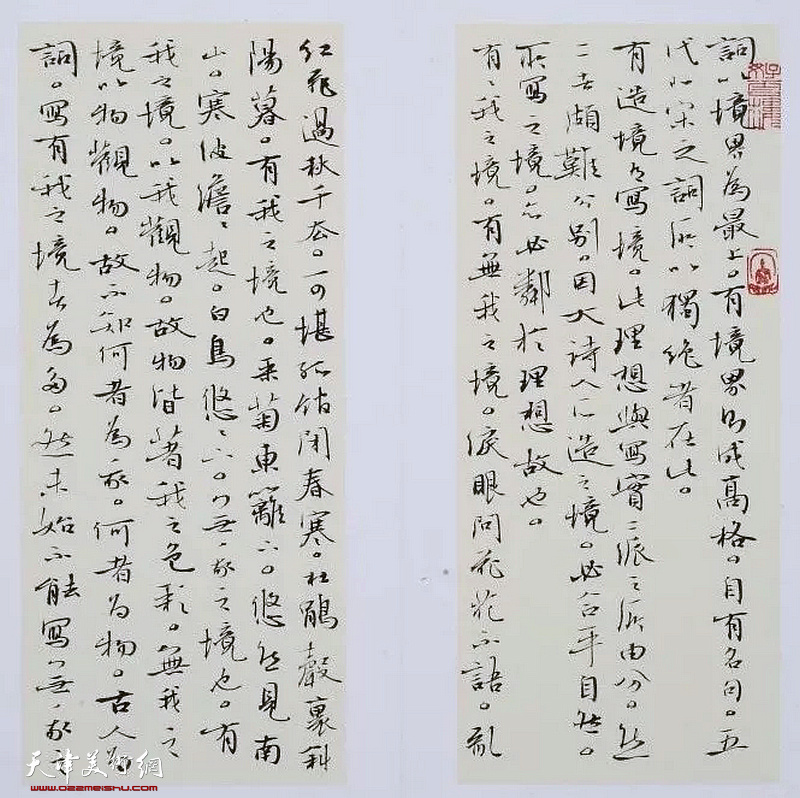 詞以境界為最上。有境界則成高格。自有名句。五
代北宋之詞所以獨絕者在此。
有造境有寫境。此理想與寫實二派之所由分。然
二者頗難分別。因大詩人所造之境。必合乎自然。
所寫之境。亦必鄰於理想故也。
有〻我之境。有無我之境。淚眼問花花不語。亂
紅飛過秋千去。可堪孤館閉春寒。杜鵑聲裏斜
陽暮。有我之境也。采菊東籬下。悠然見南
山。寒波澹〻起。白鳥悠〻下。無我之境也。有
我之境。以我觀物。故物皆著我之色彩。無我之
境以物觀物。故不知何者為我。何者為物。古人為
詞。寫有我之境者為多。然未始不能寫無我之
天津美術網
www.022meishu.com